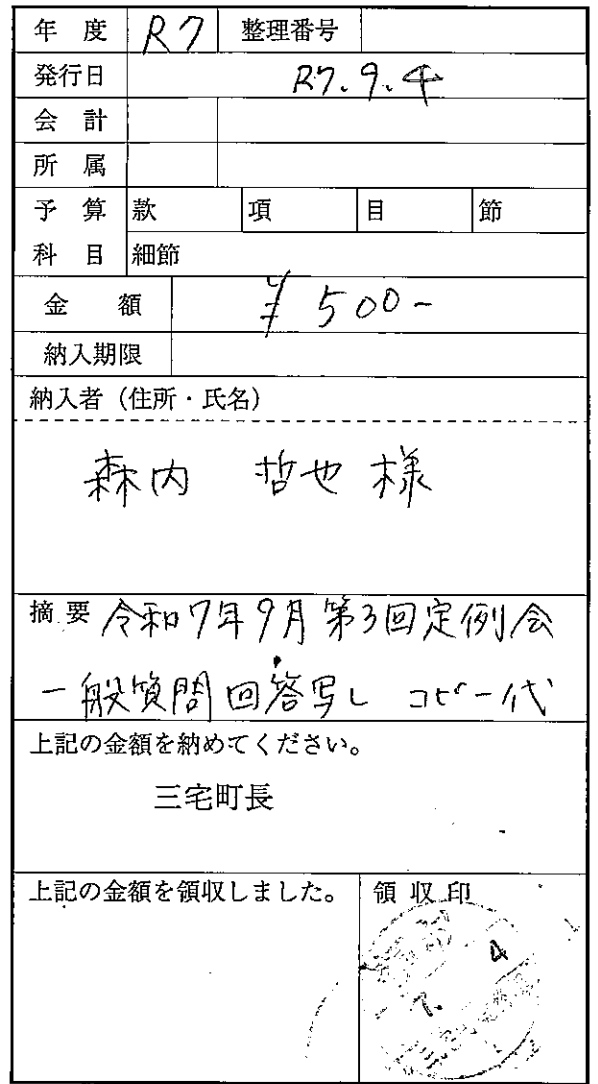 年度 R7 整理番号
発行日 R7.9.4
会計
所属
予算 款 項 目 節
科目 細節
金額 ¥500-
納入期限
納入者（住所・氏名）
森内 哲也 様
摘要 令和7年9月第3回定例会
一般質問回答写し コピー代
上記の金額を納めてください。
三宅町長
上記の金額を領収しました。 領収印